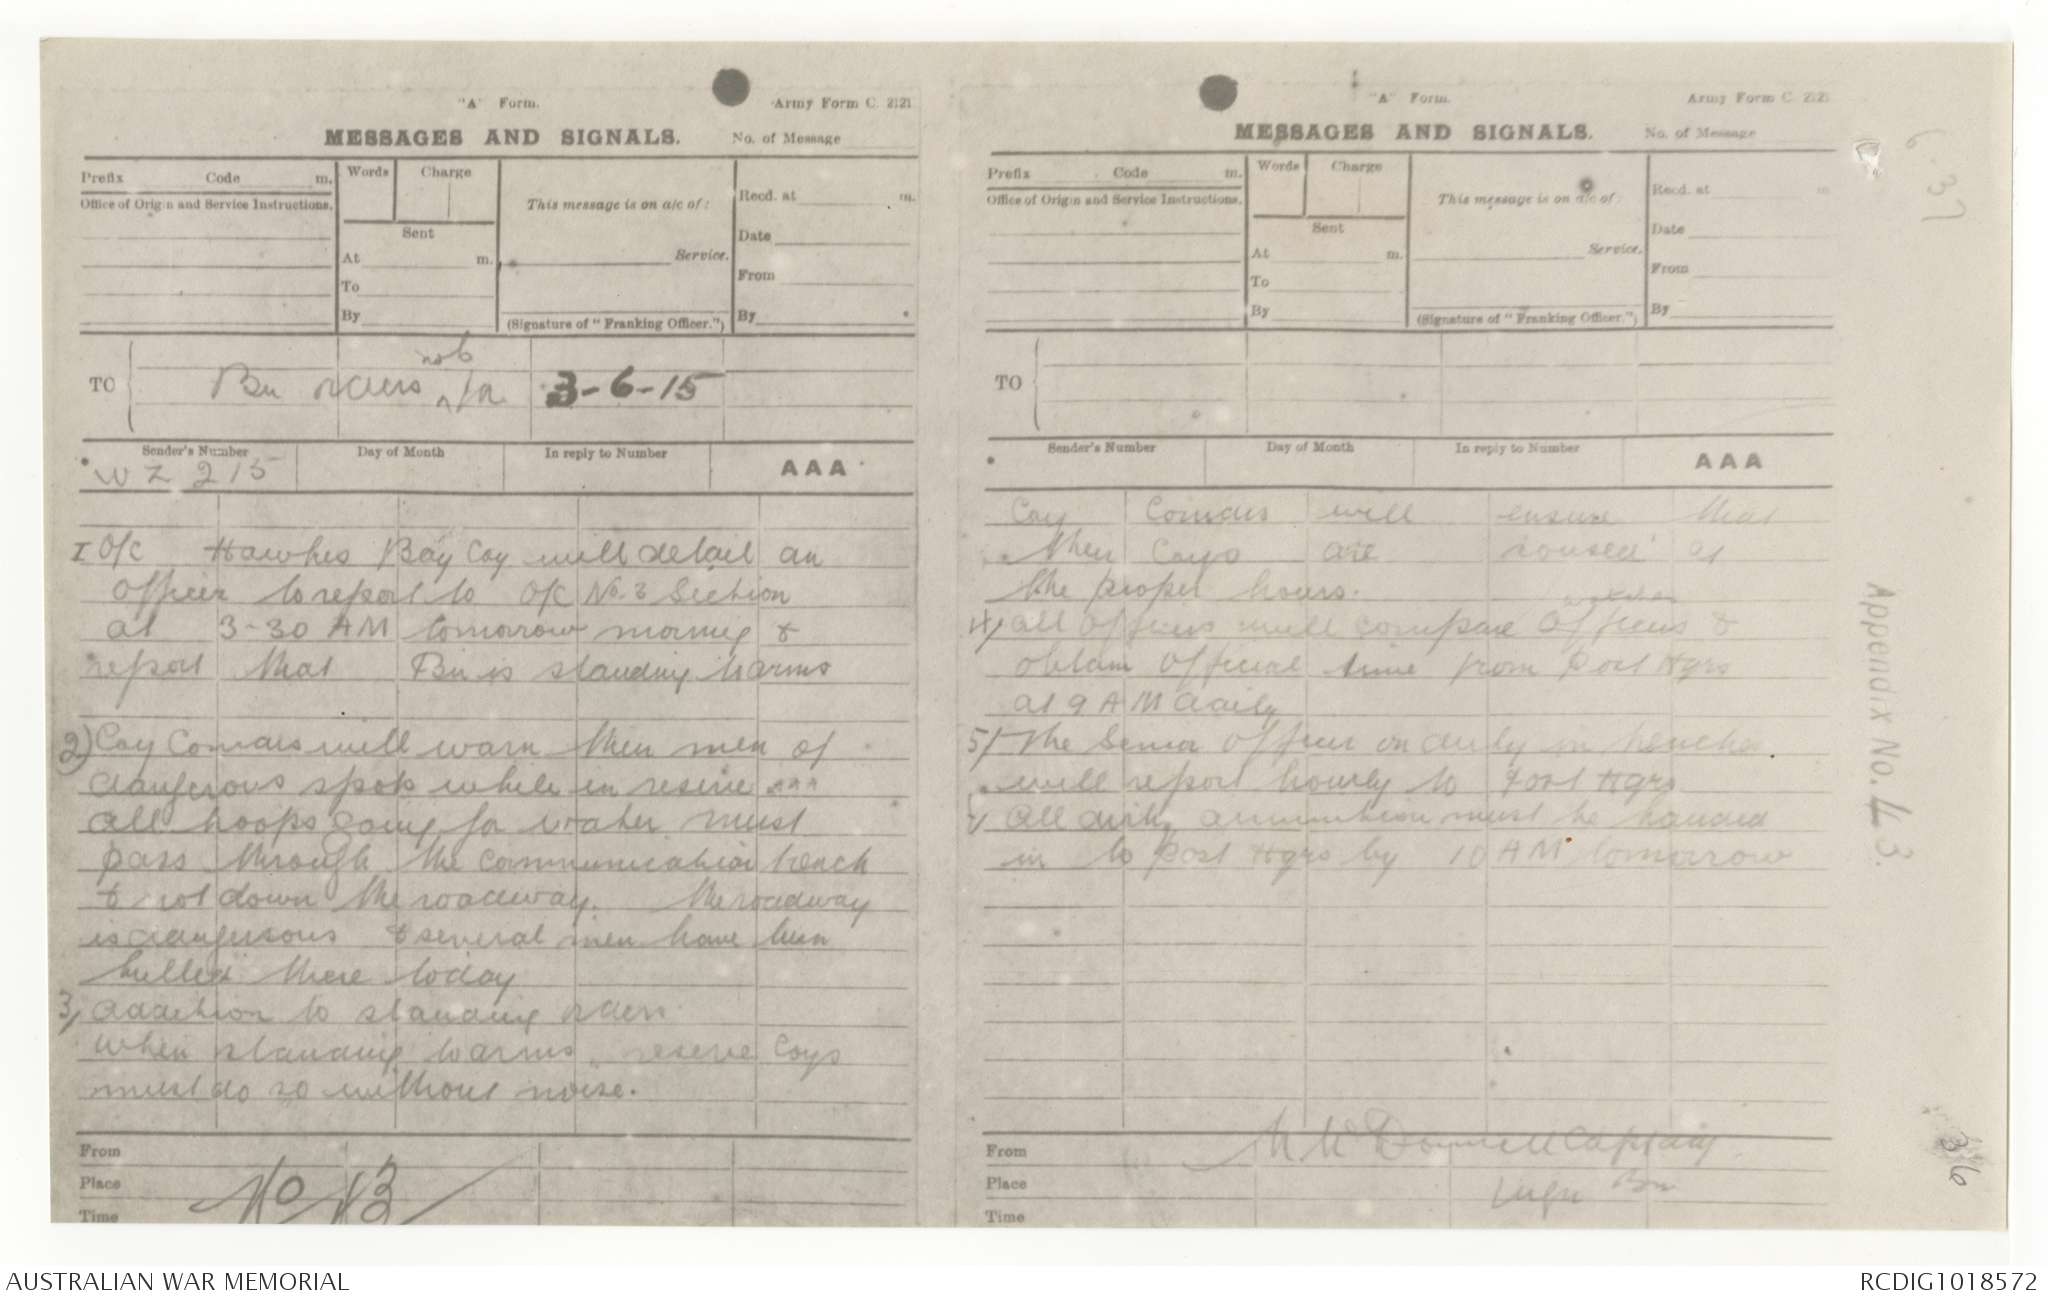 "A" Form.
Army Form C. 2121
MESSAGES AND SIGNALS.
No. of Message
Prefix Code m.
Words Charge
This message is on a/c of:
Recd. at m.
Office of Origin and Service Instructions.
Sent
Date
At m.
Service.
From
To
By
(Signature of "Franking Officer.")
By
TO
Bn orders 3-6-15
Sender's Number Day of Month In reply to Number
AAA
WZ 215
I O/C Hawkes Bay Coy will detail an
officer to report to O/C No. 3 Section
at 3-30 AM tomorrow morning &
report that Bn is standing to arms
2) Coy Comdrs will warn their men of
dangerous spots while in reserve AAA
all troops going for water must
pass through the communication trench
& not down the roadway. The roadway
is dangerous & several men have been
killed there today
3, addition to standing orders
when standing to arms, reserve Coys
must do so without noise.
From
Place
Time
"A" Form.
Army Form C. 2121
MESSAGES AND SIGNALS.
No. of Message
Prefix Code m.
Words Charge
This message is on a/c of:
Recd. at m
Office of Origin and Service Instructions.
Sent
Date
At m.
Service.
From
To
By
(Signature of "Franking Officer.")
By
TO
Sender's Number Day of Month In reply to Number
AAA
Coy Comdrs will ensure that
their Coys are roused at
the proper hours.
watches
4, all officers will compare officers &
obtain official time from Post Hqrs
at 9 AM daily
5, The Senior officer on duty in trenches
will report hourly to Post Hqrs
all dirty ammunition must be handed
in to Post Hqrs by 10 AM tomorrow
From
Captain
Place
Wgtn Bn
Time
6.37
Appendix No. 43.
36
AUSTRALIAN WAR MEMORIAL
RCDIG1018572